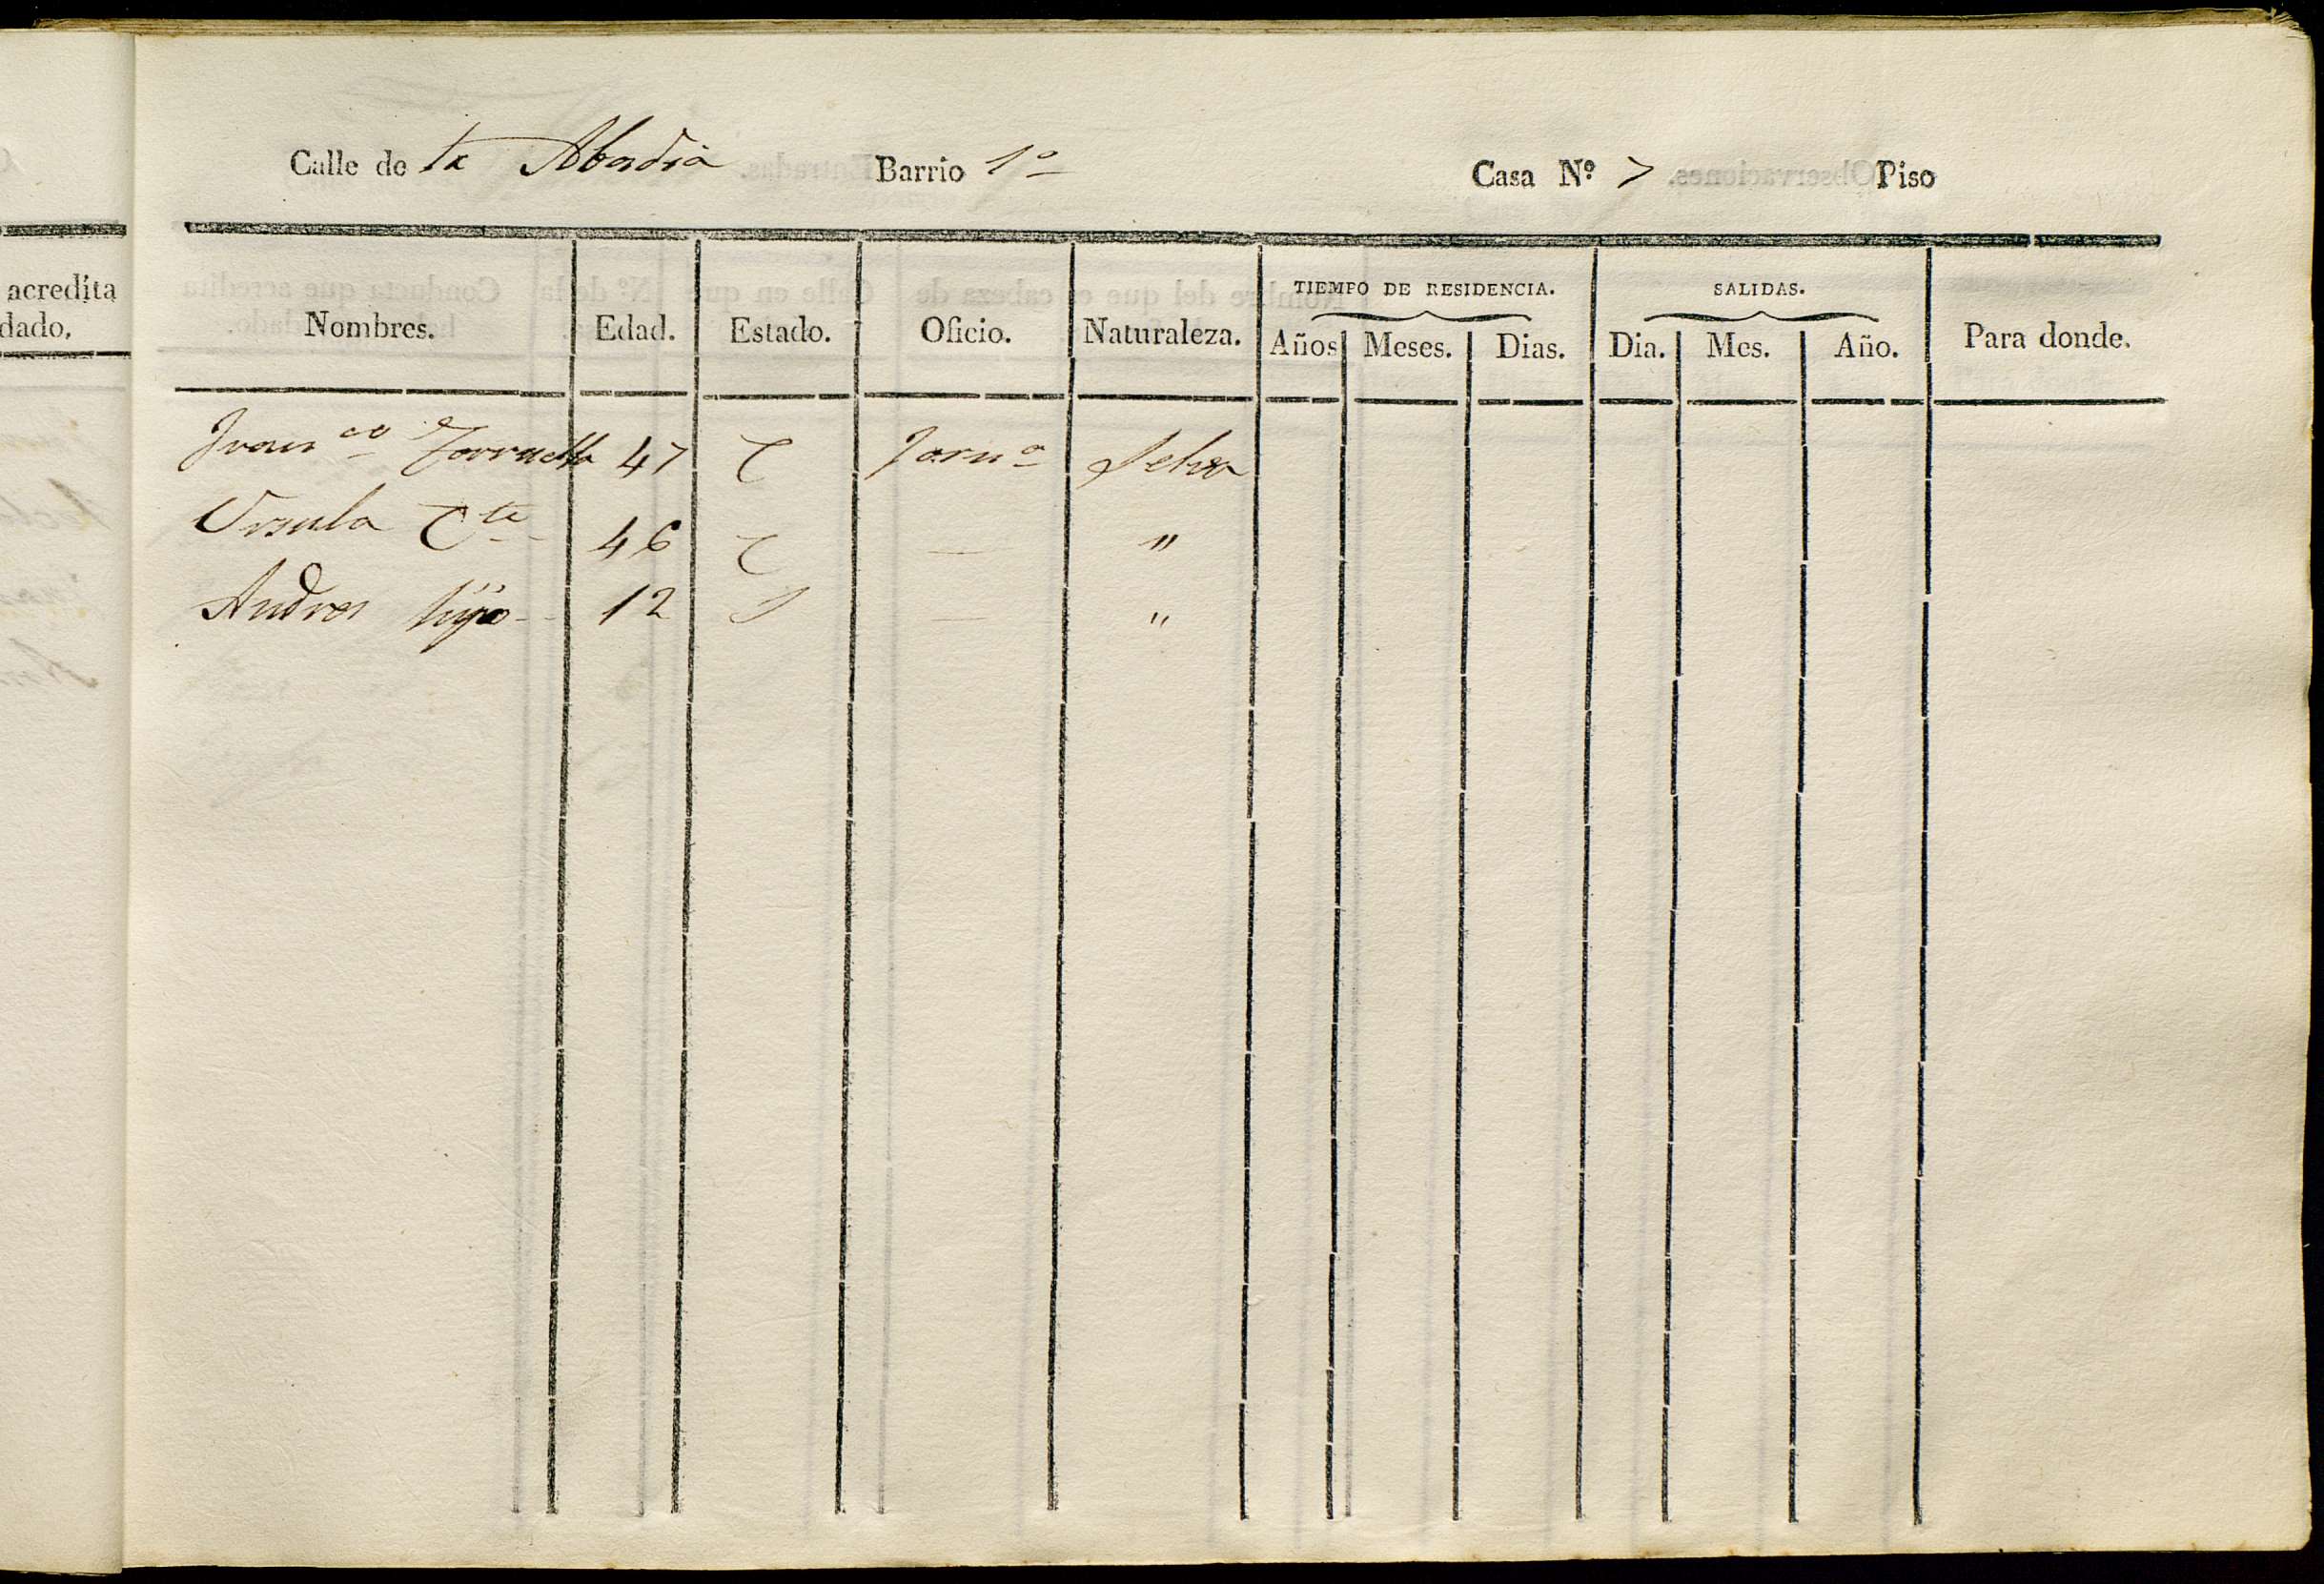 acredita
dado,
Calle de la Abadia Barrio 1º Casa Nº 7 Piso
TIEMPO DE RESIDENCIA. SALIDAS.
Nombres. Edad. Estado. Oficio. Naturaleza. Años Meses. Dias. Dia. Mes. Año. Para donde.
Franco Torruella 47 C Jorno Selva
Ursula Cte 46 C — "
Andres hijo 12 S — "